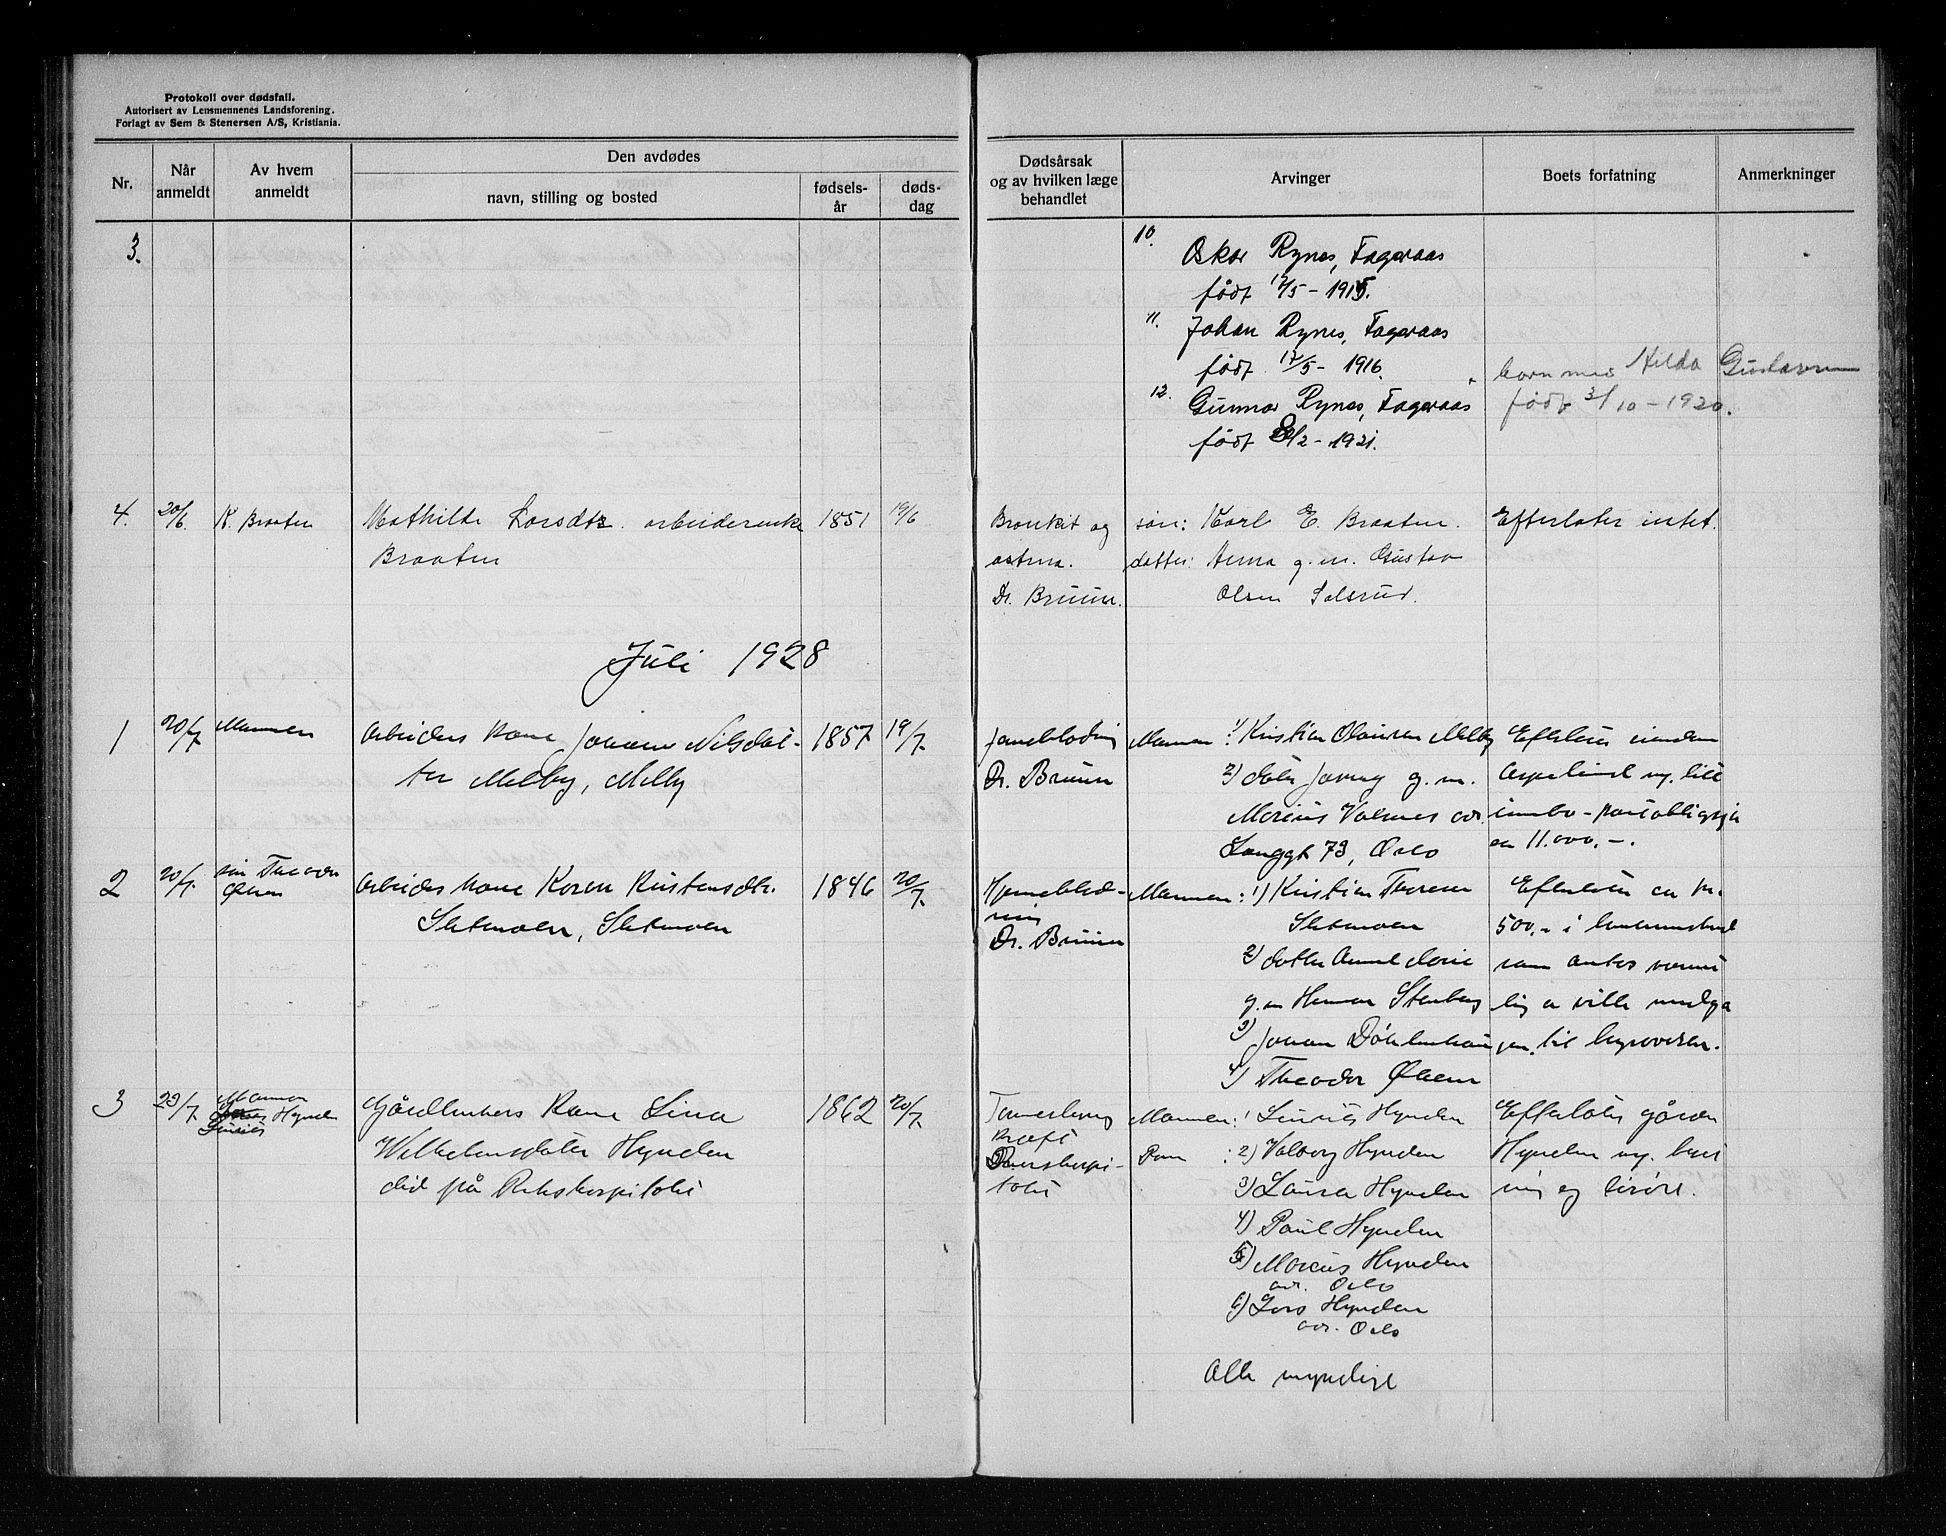 Protokoll over dødsfall.
Autorisert av Lensmennenes Landsforening.
Forlagt av Sem & Stenersen A/S, Kristiania.
Nr.
Når anmeldt
Av hvem anmeldt
Den avdødes
navn, stilling og bosted
fødsels-
år
døds-
dag
Dødsårsak
og av hvilken læge
behandlet
Arvinger
Boets forfatning
Anmerkninger
3.
10. Oskar Rynes, Fageraas
født 17/5 - 1915.
11. Johan Rynes, Fageraas
født 17/5 - 1916.
12. Gunnar Rynes, Fageraas
født 8/2 - 1921.
barn med Hilda
født 3/10 - 1920.
4. 20/6 K. Braaten Mathilde Larsdtr. arbeiderenke 1851 19/6
Braaten
Bronkit og
astma.
Dr. Bruun.
søn: Karl E. Braaten.
datter: Anna g.m. Gustav
Olsen Solsrud.
Efterlater intet.
Juli 1928
1 20/7 Mannen Arbeiders kone Johanne Nilsdat-
ter Melby, Melby
1857 19/7
Dr. Bruun
Mannen: 1) Kristian Olausen Melby
2) datter g. m.
Marius adr.
Langgt 73, Oslo
Efterlater eiendom
m. litt
innbo - pantobligasjon
11.000,-.
2 20/7 søn Theodor
Olsen
Arbeiders kone Karen Kristensdtr.
Sletmoen, Sletmoen
1846 20/7
Hjerneblød-
ning
Dr. Bruun
Mannen: 1) Kristian
Sletmoen
2) datter
g. m. Herman Stenberg
3) Johan
4) Theodor Olsen
Efterlater ca kr.
500,- i
som antas
lig å ville medgå
til begravelsen.
3 23/7 Mannen
Hynden
Gårdbrukers kone Lina
Wilhelmsdatter Hynden
død på Rikshospitalet
1862 20/7
kræft
Mannen: 1 Hynden
Barn: 2) Valborg Hynden
3) Laura Hynden
4) Paul Hynden
5) Marius Hynden
adr. Oslo
6) Lars Hynden
adr. Oslo
Alle myndige
Efterlater gården
Hynden m. beset
ning og løsøre.